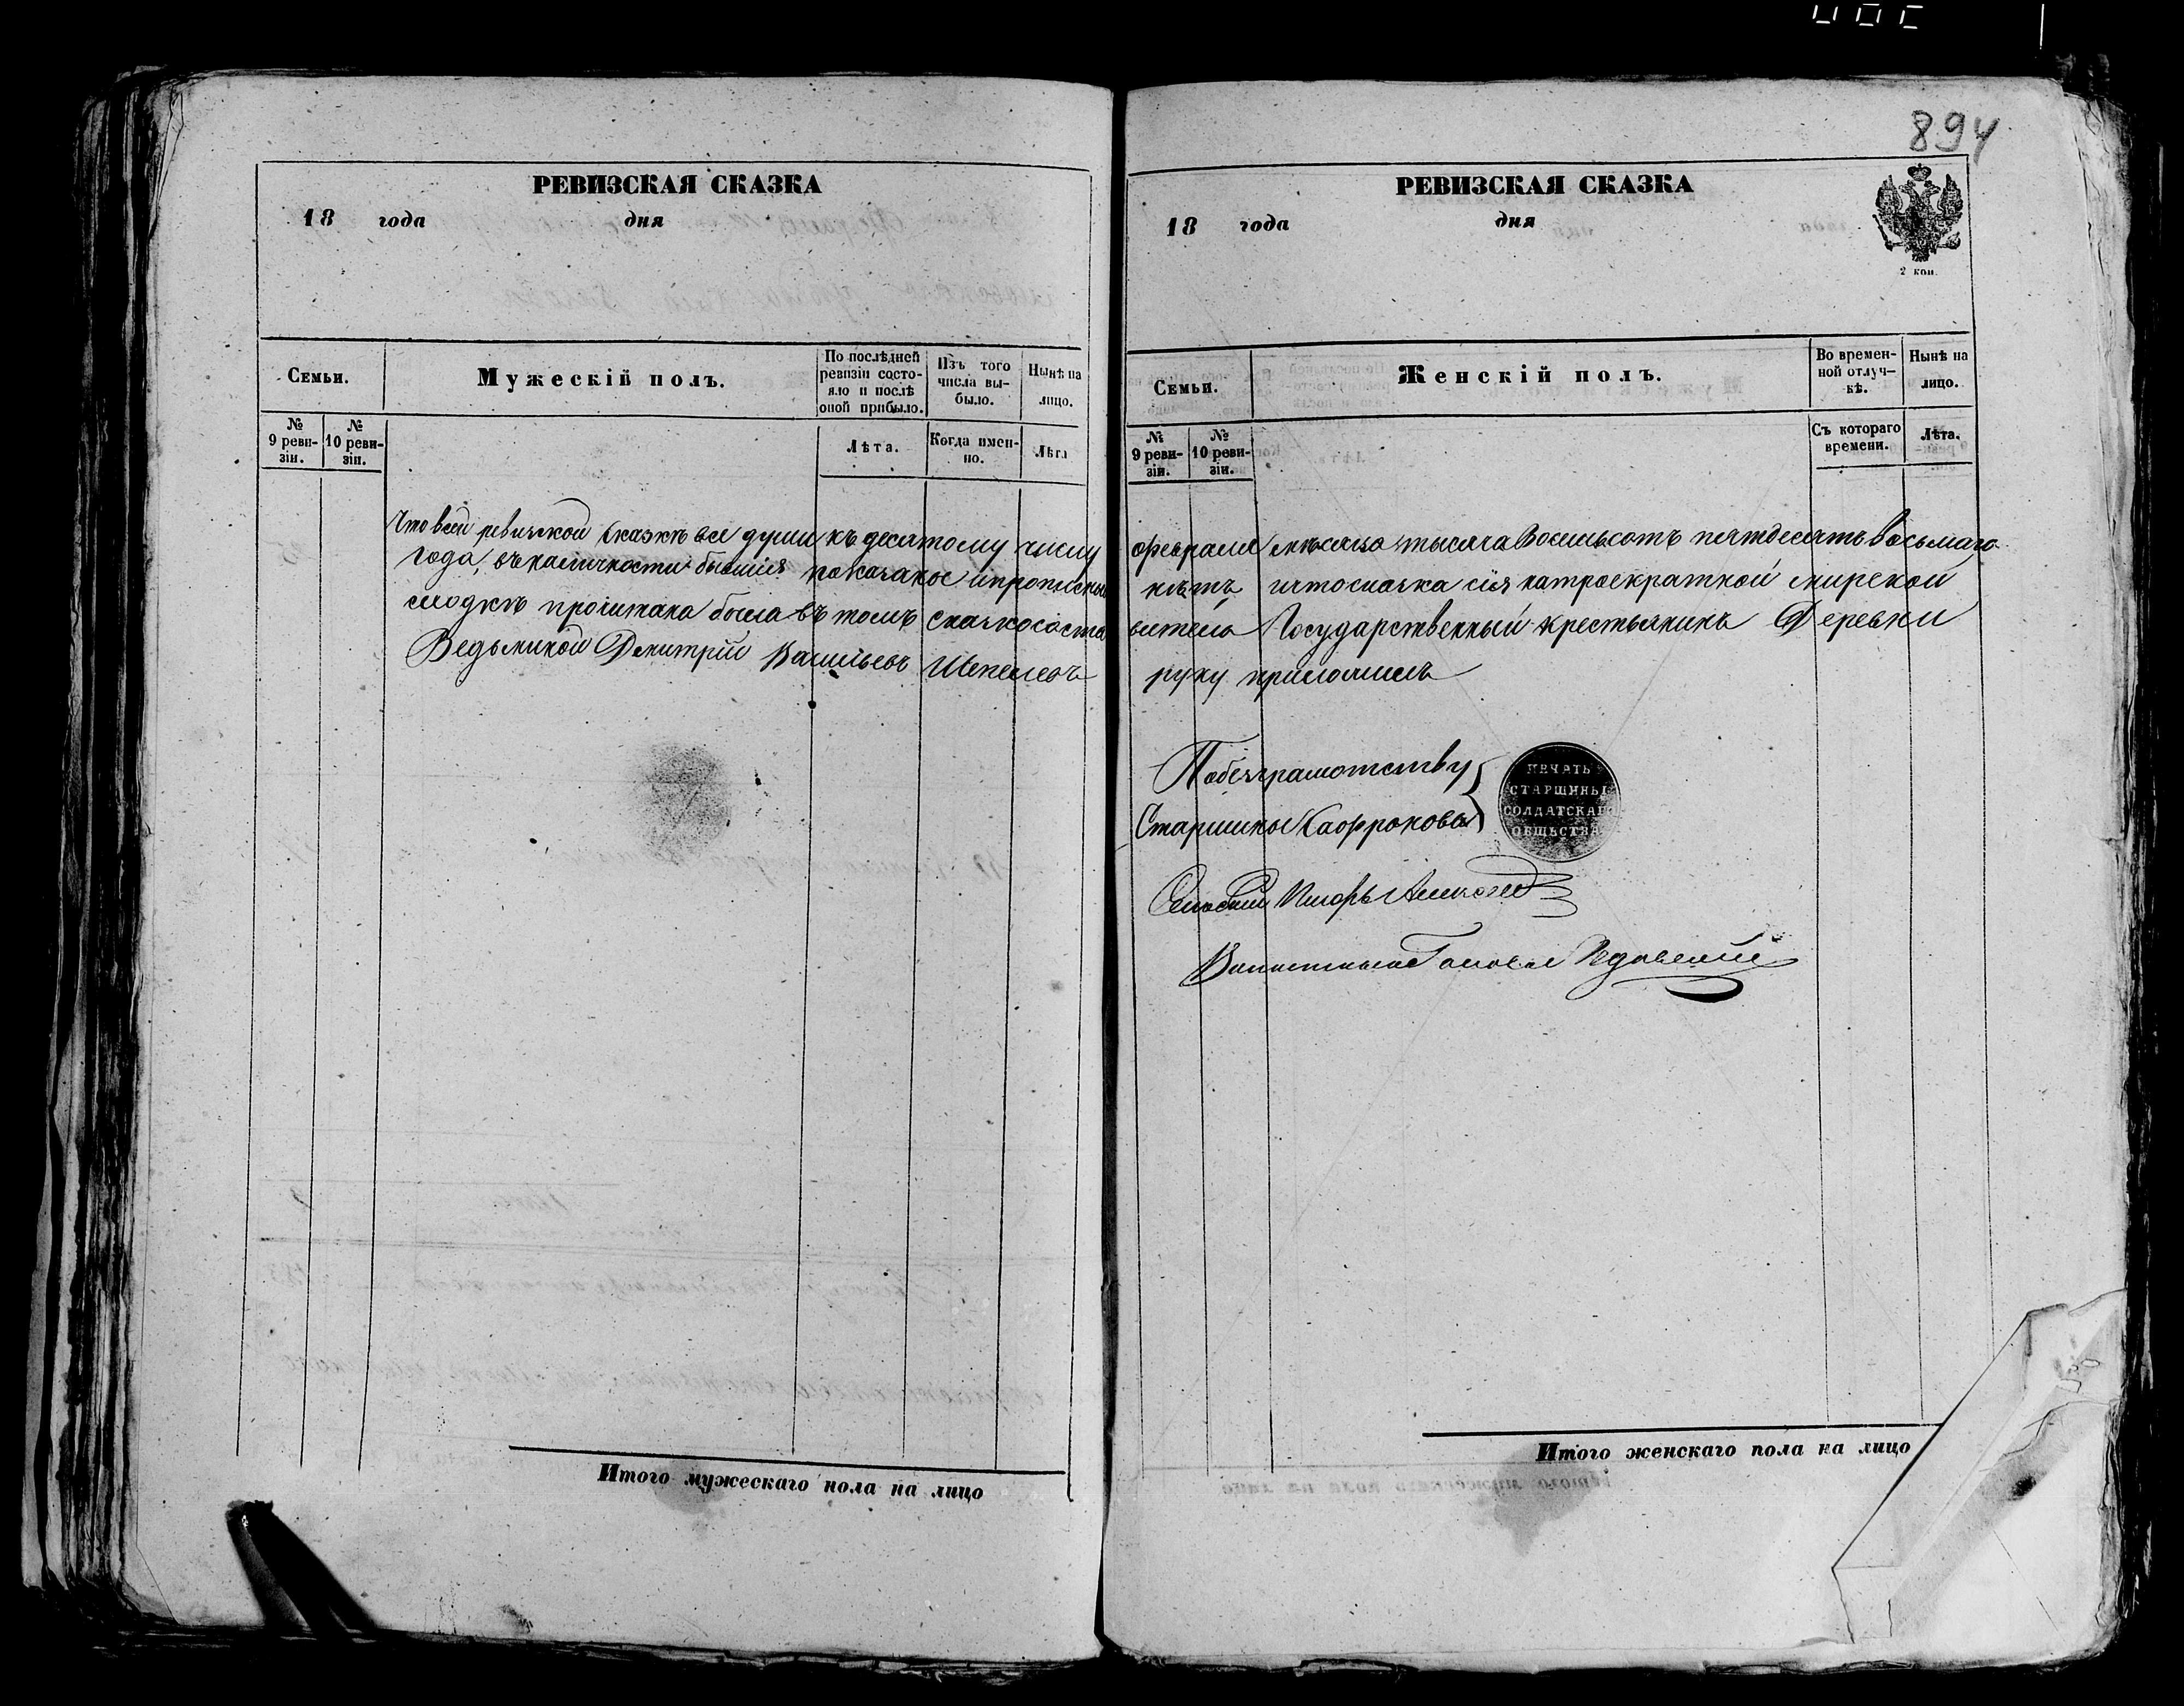 894
РЕВИЗСКАЯ СКАЗКА
18 года дня
Семьи.
Мужескій полъ.
По послѣдней ревизіи состояло и послѣ оной прибыло.
Изъ того числа выбыло.
Нынѣ на лицо.
№ 9 ревизіи.
№ 10 ревизіи.
Лѣта.
Когда именно.
Лѣта
Что всей ревизской сказкѣ все души къ десятому числу
года, въ наличности бывшия показаное
сказка прочитана была въ томъ
Ведьминой Дмитрій Васильевъ Шепелевъ
Итого мужескаго пола на лицо
РЕВИЗСКАЯ СКАЗКА
18 года дня
2 коп.
Семьи.
Женскій полъ.
Во временной отлучкѣ.
Нынѣ на лицо.
№ 9 ревизіи.
№ 10 ревизіи.
Съ котораго времени.
Лѣта.
февраля мѣсяца тысяча Восемьсотъ пятдесять восьмаго
нѣтъ что сказка сія на троекратной мирской
витель Государственный крестьянинъ Деревни
руку приложилъ
Побезграмотству
Старшины
ПЕЧАТЬ
СТАРШИНЫ
СОЛДАТСКАГ
ОБЩЬСТВА
Сельский Писарь
Волостной Голова
Итого женскаго пола на лицо